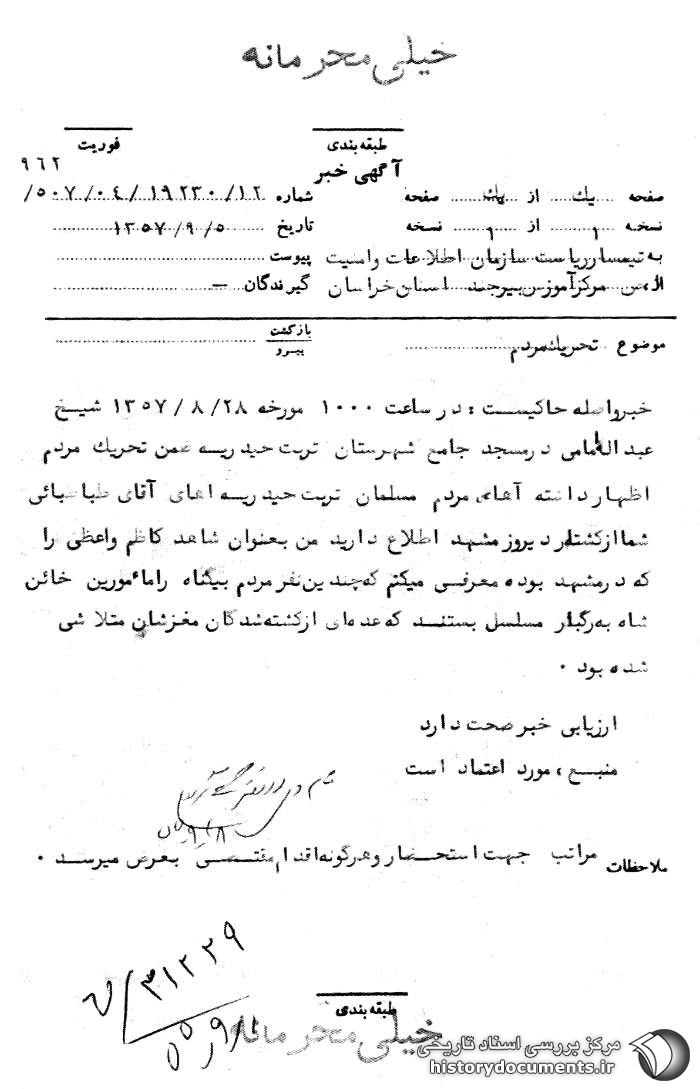 خیلی محرمانه
طبقه‌بندی
فوریت
آگهی خبر
۹۶۲
صفحه یك از یك صفحه
شماره ۱۲/ ۱۹۲۳۰/ ۰۴/ ۵۰۷/
نسخه ۱ از ۱ نسخه
تاریخ ۵/ ۹/ ۱۳۵۷
به تیمسار ریاست سازمان اطلاعات وامنیت
پیوست
از، من مرکز آموزش بیرجند استان خراسان
گیرندگان —
موضوع تحریك مردم
بازگشت
پیرو
خبر واصله حاکیست : در ساعت ۱۰۰۰ مورخه ۲۸/ ۸/ ۱۳۵۷ شیخ
عبداله امامی در مسجد جامع شهرستان تربت حیدریه ضمن تحریك مردم
اظهار داشته آهای مردم مسلمان تربت حیدریه اهای آقای طباطبائی
شما از کشتار دیروز مشهد اطلاع دارید من بعنوان شاهد کاظم واعظی را
که در مشهد بوده معرفی میکنم که چندین نفر مردم بیگناه را مأمورین خائن
شاه به رگبار مسلسل بستند که عده‌ای از کشته شدگان مغزشان متلاشی
شده بود .
ارزیابی خبر صحت دارد
منبع ، مورد اعتماد است
۵۷/۹/۸
ملاحظات مراتب جهت استحضار و هرگونه اقدام مقتضی بعرض میرسد .
۳۱۲۲۹
طبقه‌بندی
خیلی محرمانه
مرکز بررسی اسناد تاریخی
historydocuments.ir